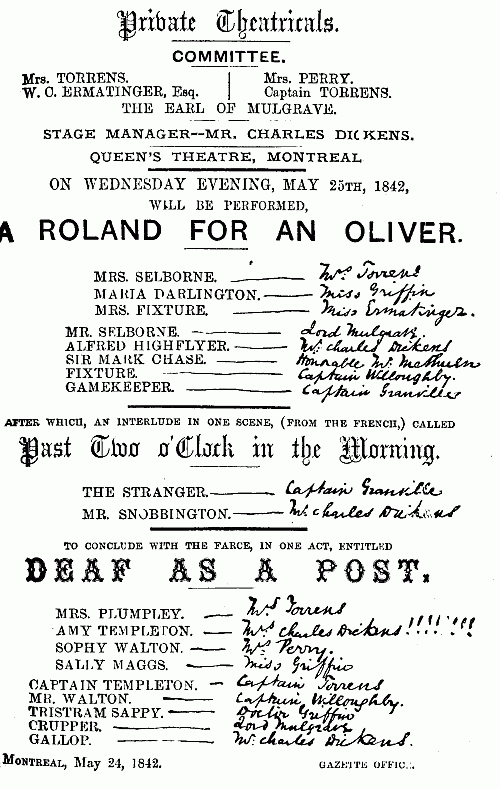 Private Theatricals.
COMMITTEE.
Mrs. TORRENS. | Mrs. PERRY.
W. C. ERMATINGER, Esq. | Captain TORRENS.
THE EARL OF MULGRAVE.
STAGE MANAGER--MR. CHARLES DICKENS.
QUEEN'S THEATRE, MONTREAL
ON WEDNESDAY EVENING, MAY 25TH, 1842,
WILL BE PERFORMED,
A ROLAND FOR AN OLIVER.
MRS. SELBORNE. Mrs Torrens
MARIA DARLINGTON. Miss Griffin
MRS. FIXTURE. Miss Ermatinger.
MR. SELBORNE. Lord Mulgrave.
ALFRED HIGHFLYER. Mr. Charles Dickens
SIR MARK CHASE. Honorable Mr. Methuen
FIXTURE. Captain Willoughby.
GAMEKEEPER. Captain Granville
AFTER WHICH, AN INTERLUDE IN ONE SCENE, (FROM THE FRENCH,) CALLED
Past Two o'Clock in the Morning.
THE STRANGER. Captain Granville
MR. SNOBBINGTON. Mr. Charles Dickens
TO CONCLUDE WITH THE FARCE, IN ONE ACT, ENTITLED
DEAF AS A POST.
MRS. PLUMPLEY. Mrs Torrens
AMY TEMPLETON. Mrs Charles Dickens!!!!!!!!
SOPHY WALTON. Mrs Perry.
SALLY MAGGS. Miss Griffin
CAPTAIN TEMPLETON. Captain Torrens
MR. WALTON. Captain Willoughby.
TRISTRAM SAPPY. Doctor Griffin
CRUPPER. Lord Mulgrave
GALLOP. Mr. Charles Dickens.
MONTREAL, May 24, 1842. GAZETTE OFFICE.